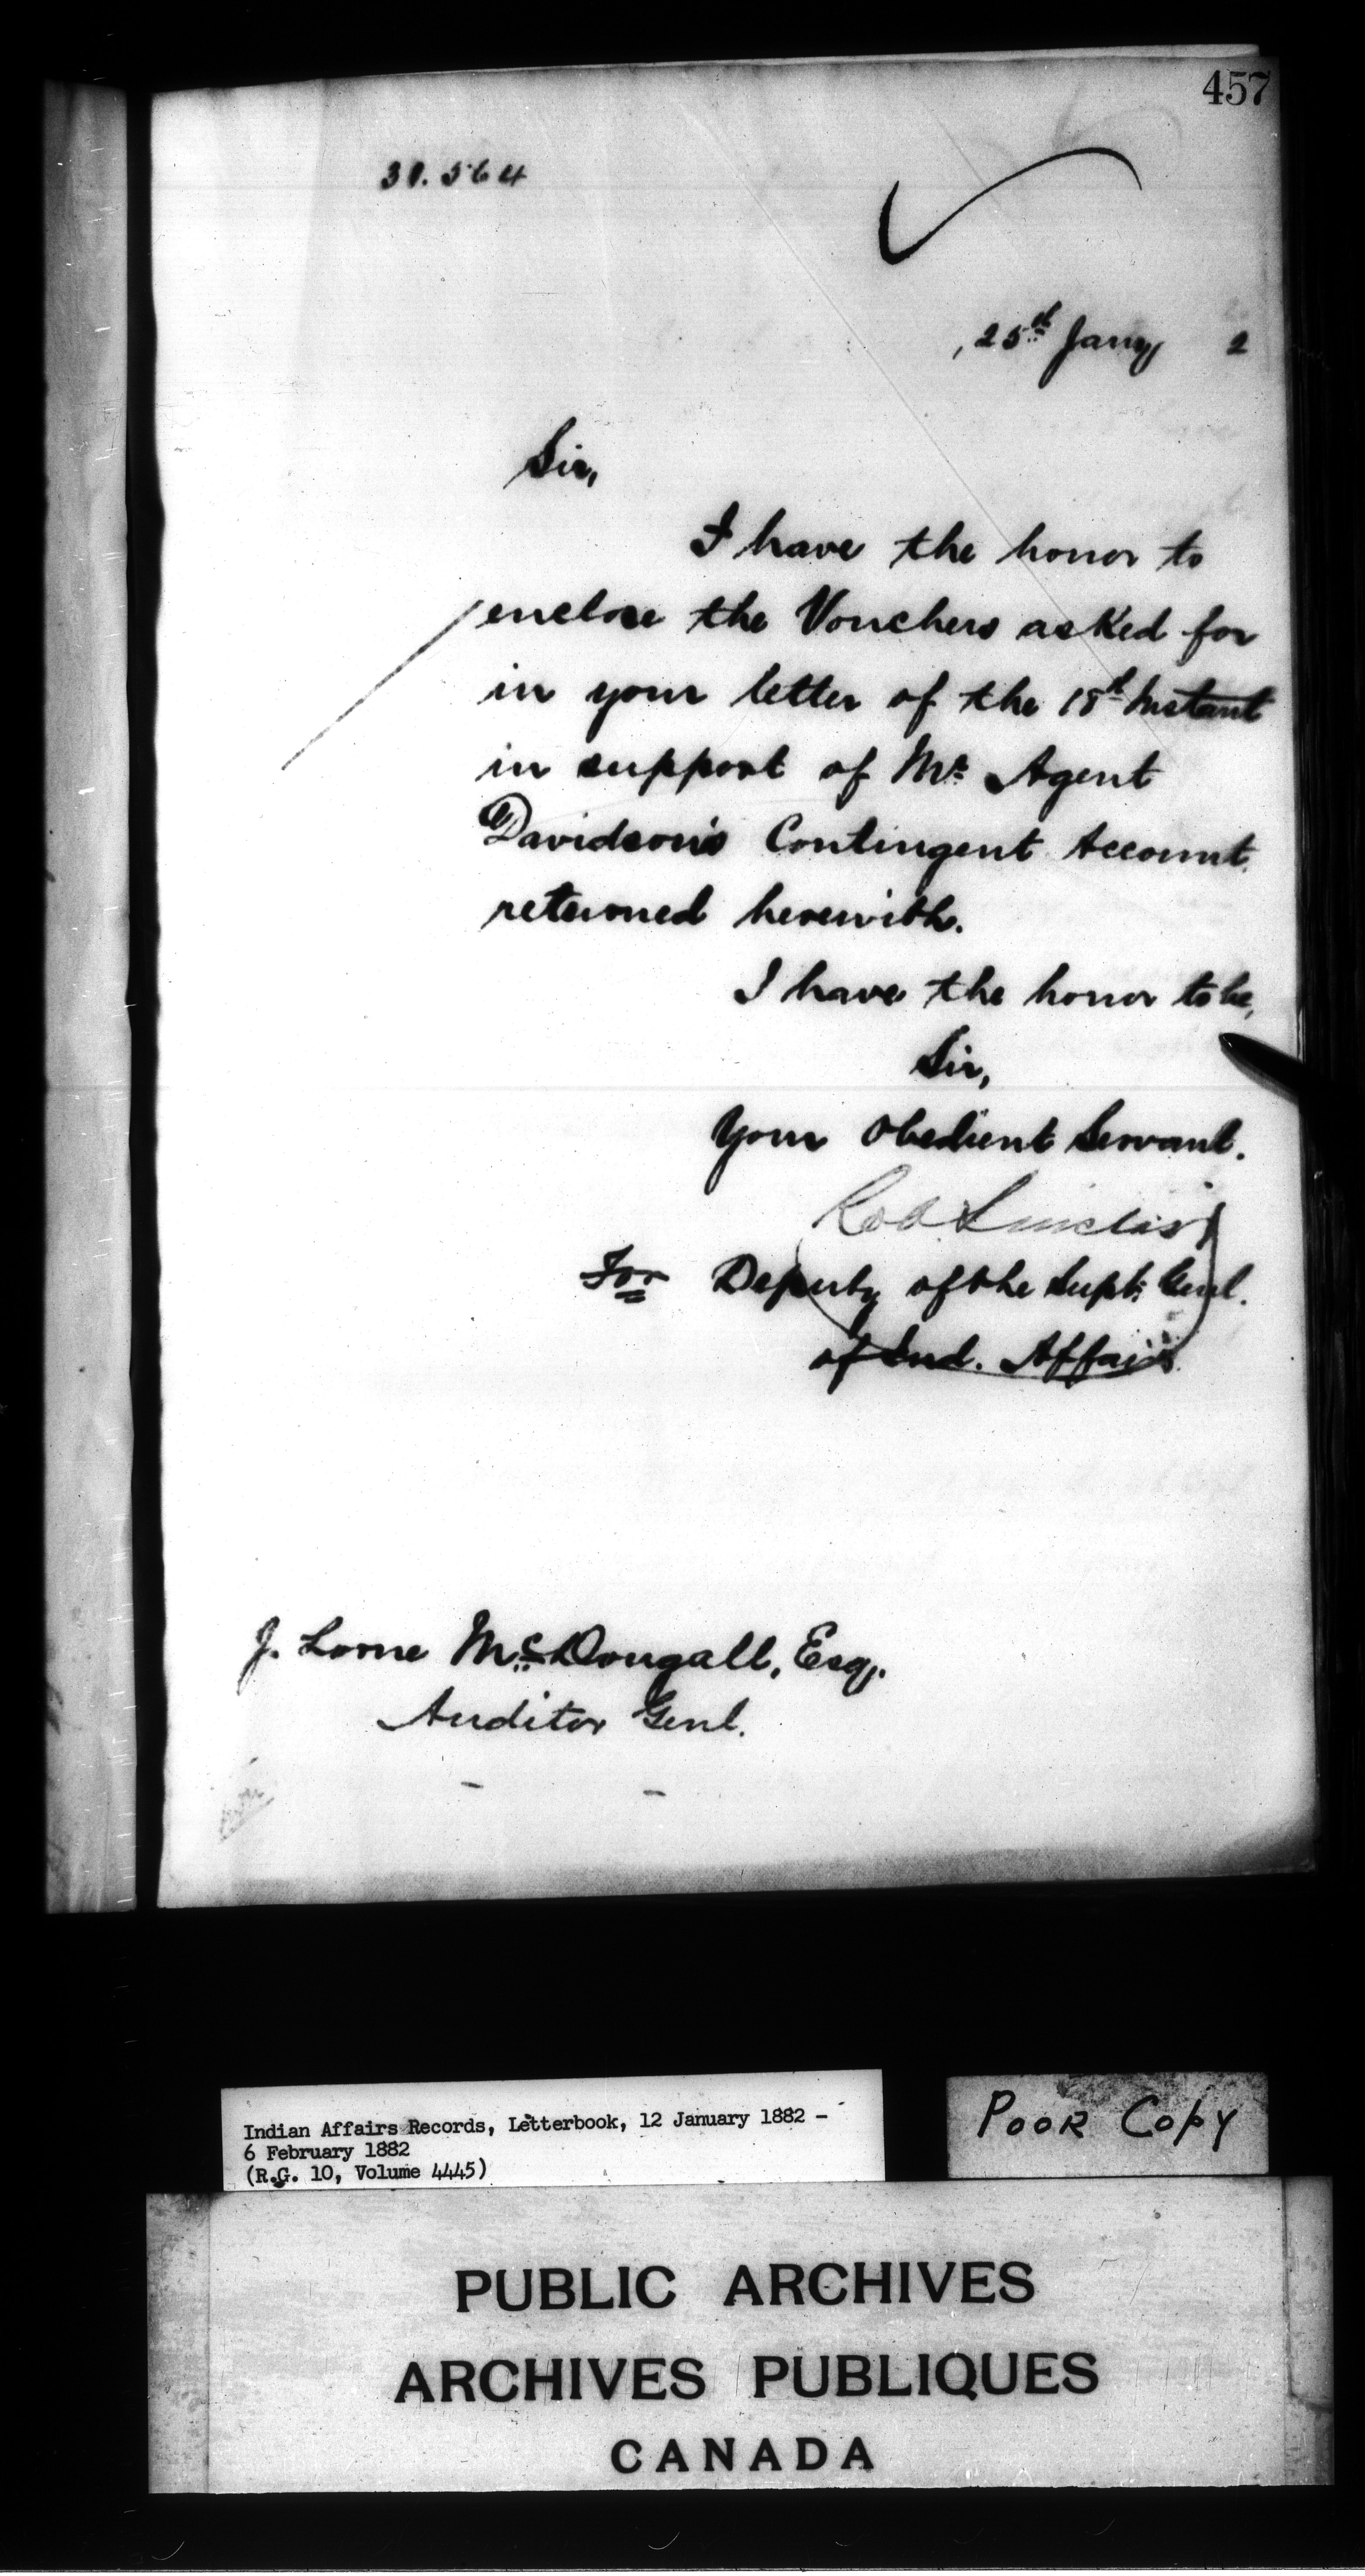 457
30.564
, 25th Jany 2
Sir,
I have the honor to
enclose the Vouchers asked for
in your letter of the 18th Instant
in support of Mr. Agent
Davidson's Contingent Account
returned herewith.
I have the honor to be,
Sir,
Your Obedient Servant.
Rob Sinclair
For Deputy of the Supt. Genl.
of Ind. Affairs.
J. Lorne McDougall, Esq.
Auditor Genl.
Indian Affairs Records, Letterbook, 12 January 1882 -
6 February 1882
(R.G. 10, Volume 4445)
POOR COPY
PUBLIC ARCHIVES
ARCHIVES PUBLIQUES
CANADA